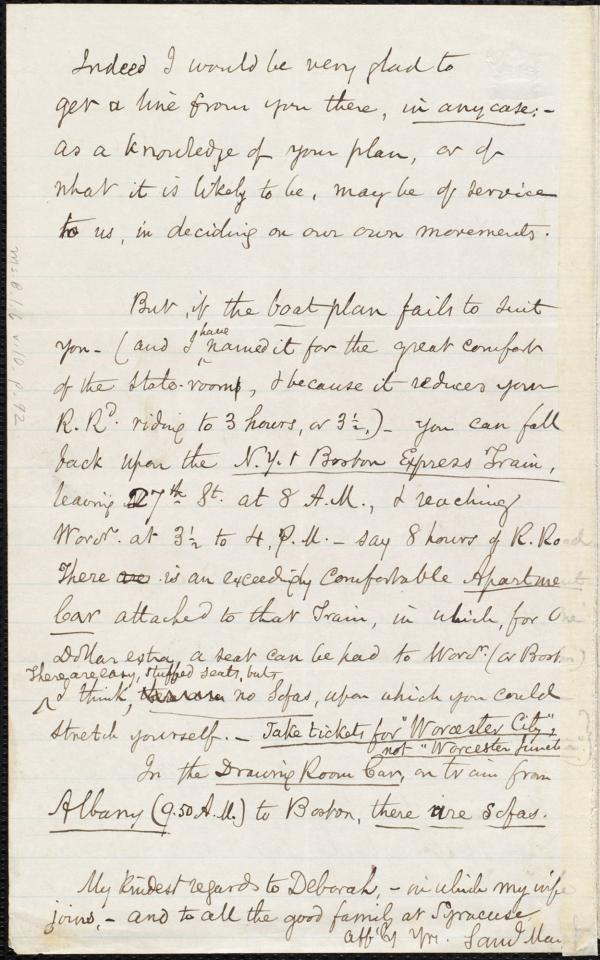 Indeed I would be very glad to
get a line from you there, in any case; -
as a knowledge of your plan, or of
what it is likely to be, may be of service
to us, in deciding on our own movements.
But, if the boat plan fails to suit
you - (and I have named it for the great comfort
of the State-room, & because it reduces your
R.Rd. riding to 3 hours, or 3½,) - you can fall
back upon the N.Y. & Boston Express Train,
leaving 27th St. at 8 A.M., & reaching
Worcr. at 3½ to 4, P.M. - say 8 hours of R. Road
There are is an exceedingly comfortable Apartment
Car attached to that Train, in which, for One
Dollar extra, a seat can be had to Worcr. (or Boston)
There are easy, stuffed seats, but
I think, no Sofas, upon which you could
stretch yourself. - Take tickets for "Worcester City",
not "Worcester Junction"
In the Drawing Room Car, on train from
Albany (9.50 A.M.) to Boston, there are Sofas.
My kindest regards to Deborah, - in which my wife
joins, - and to all the good family at Syracuse
Affly Yrs. Saml May
Ms B 1.6 v.10 p.92